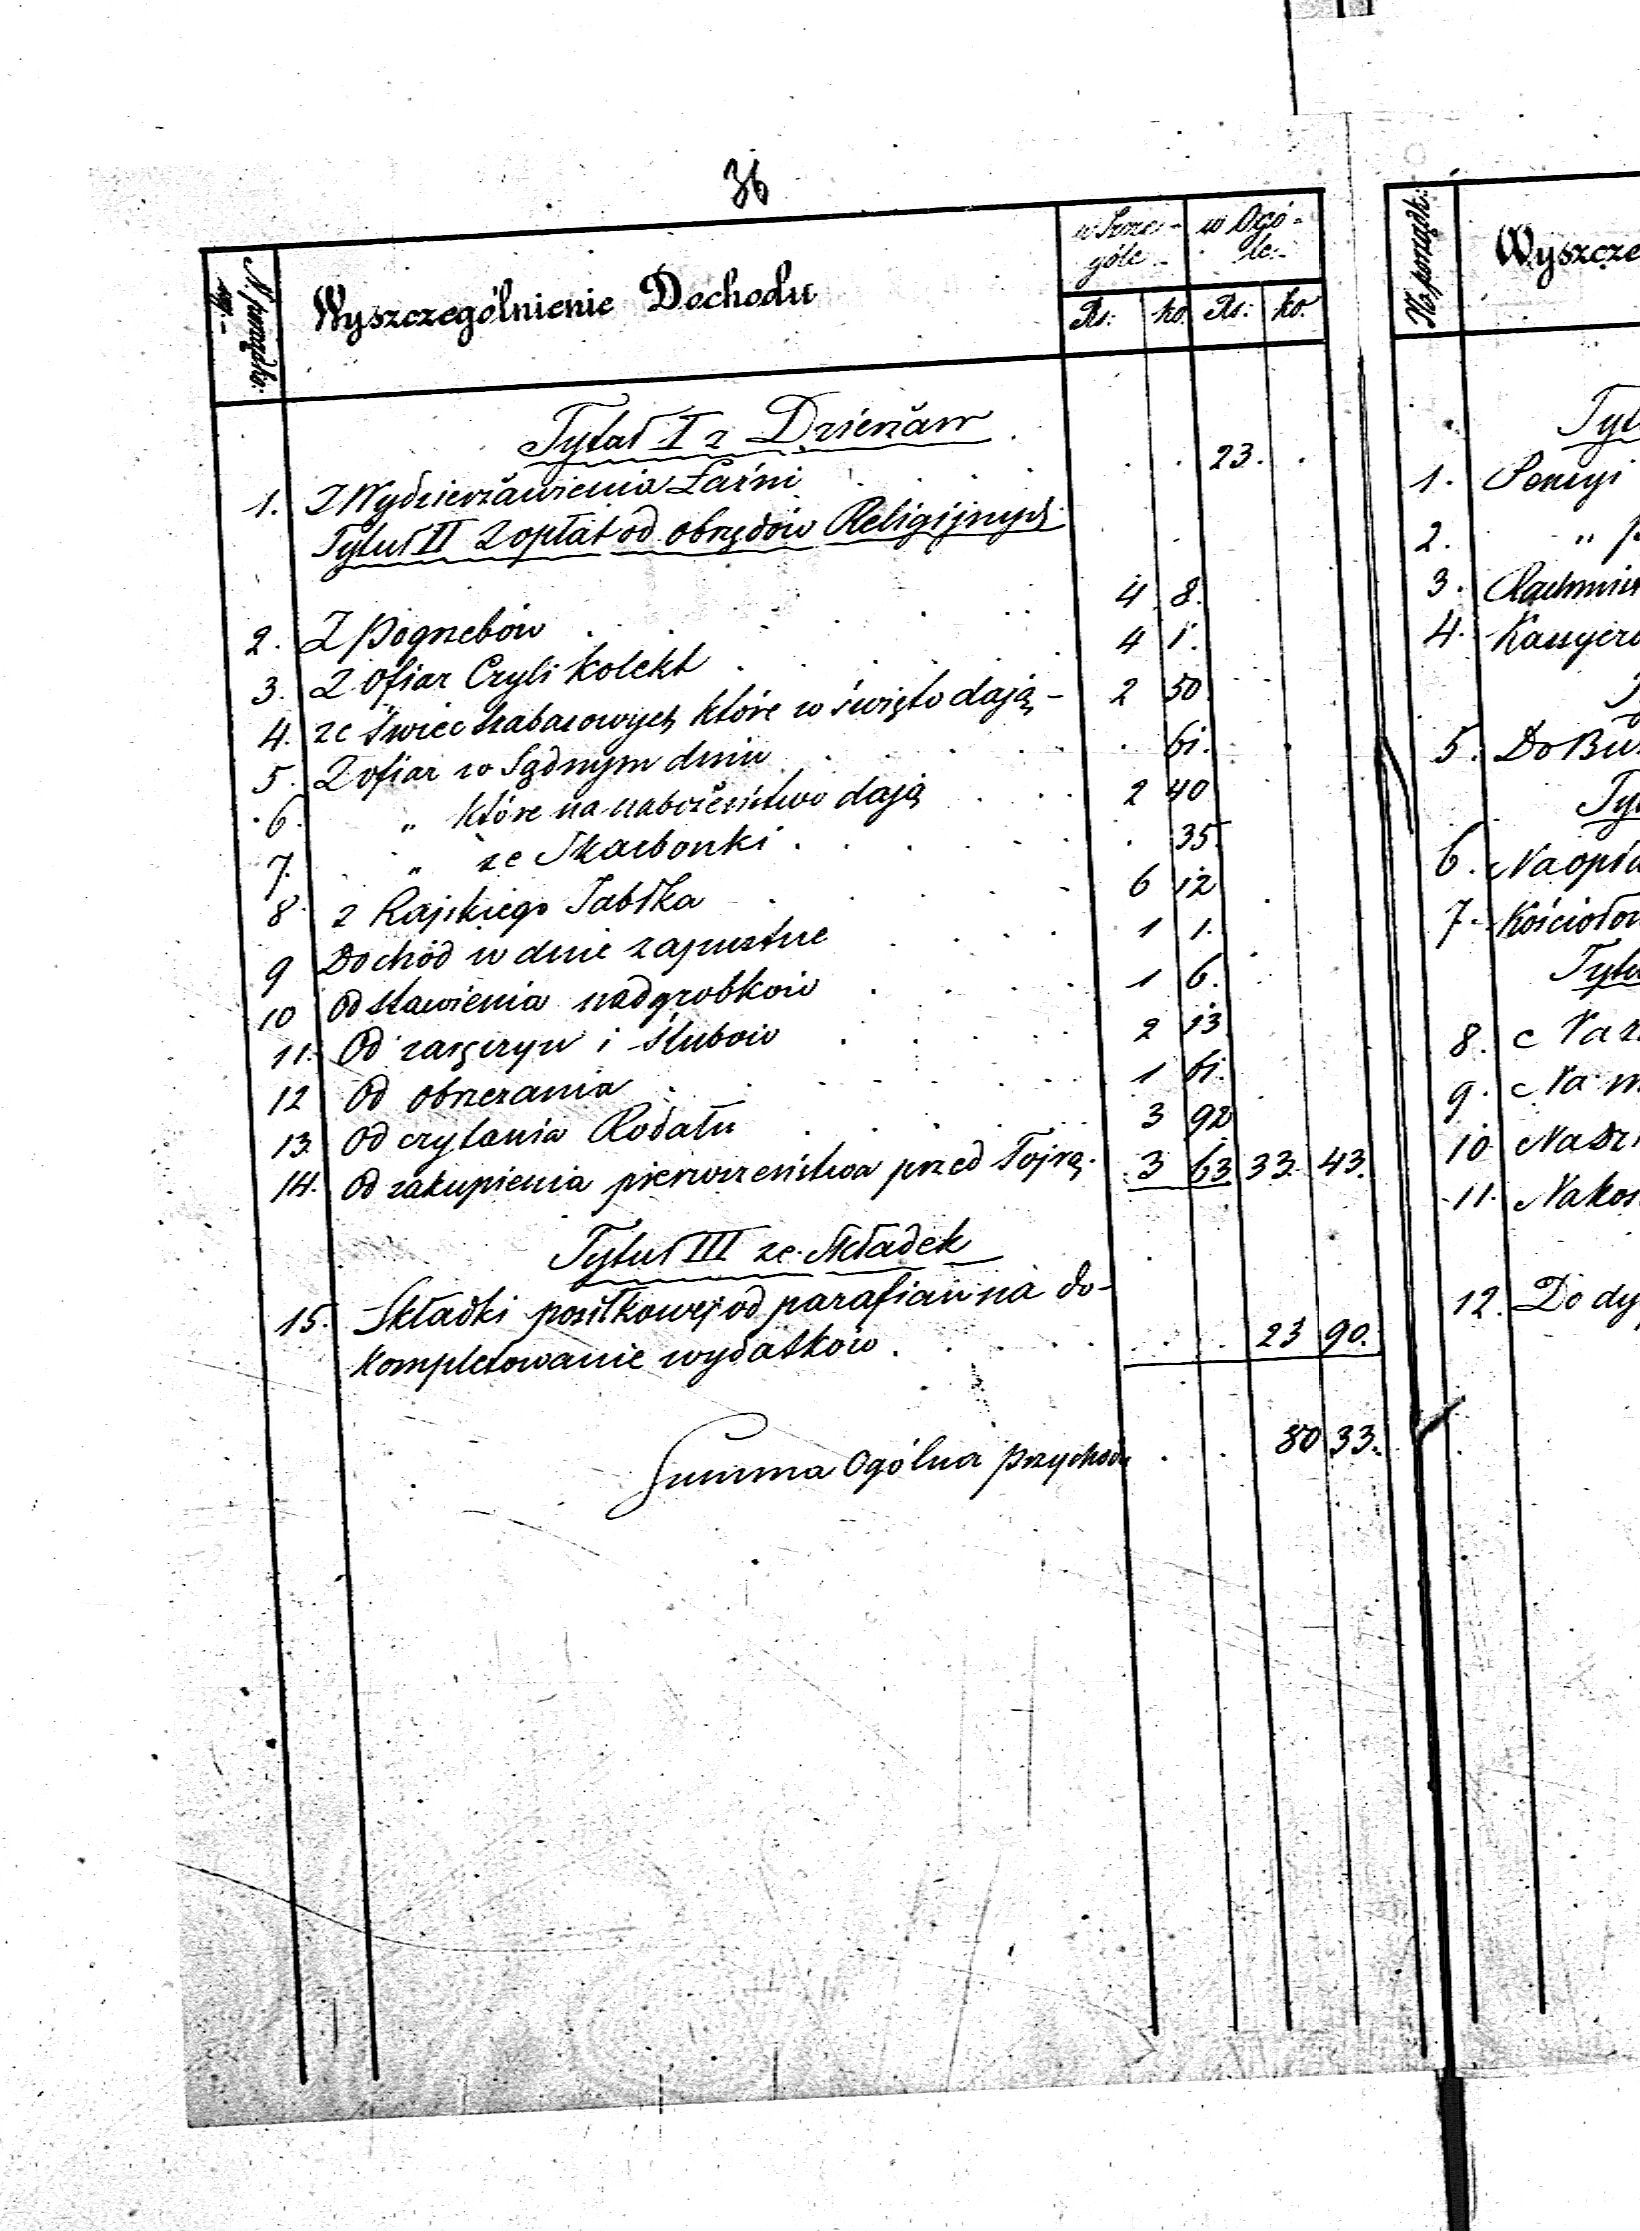 36
N. porządko-
wy
Wyszczególnienie Dochodu
w Szcze-
góle
w Ogó-
le
Rs: ko. Rs: ko.
Tytuł I z Dzierżaw
1. Z Wydzierżawienia Łaźni . . . 23. .
Tytuł II Z opłat od obrzędów Religijnych
2. Z Pogrzebów . . . 4 8.
3. Z Ofiar Czyli Kolekt . . . 4 1.
4. ze Świec szabasowych które w święto dają - 2 50
5. Z ofiar w Sądnym dniu . . . 61.
6. " które na nabożeństwo dają . . . 2 40
7. " ze Skarbonki . . . 35
8. z Rajskiego Jabłka - . . . 6 12
9 Dochód w dnie zapustne . . . 1 1.
10 Od stawienia nadgrobków . . . 1 6.
11. Od zaręczyn i Ślubów . . . 2 13
12 Od obrzezania . . . 1 61.
13. Od czytania Rodału . . . 3 92
14. Od zakupienia pierwszeństwa przed Tojrą. 3 63 33 43.
Tytuł III ze Składek
15. Składki posiłkowej od parafian na do-
kompletowanie wydatków . . . 23 90.
Summa Ogólna Przychodu . . 80 33.
N. porządk:
Wyszcze
1. Pensyi
2. "
3.
4. Kassyero
5. Do
6. Na opła
7. Kościołow
8. Na
9. Na
10 Na
11. Na
12. Do dy